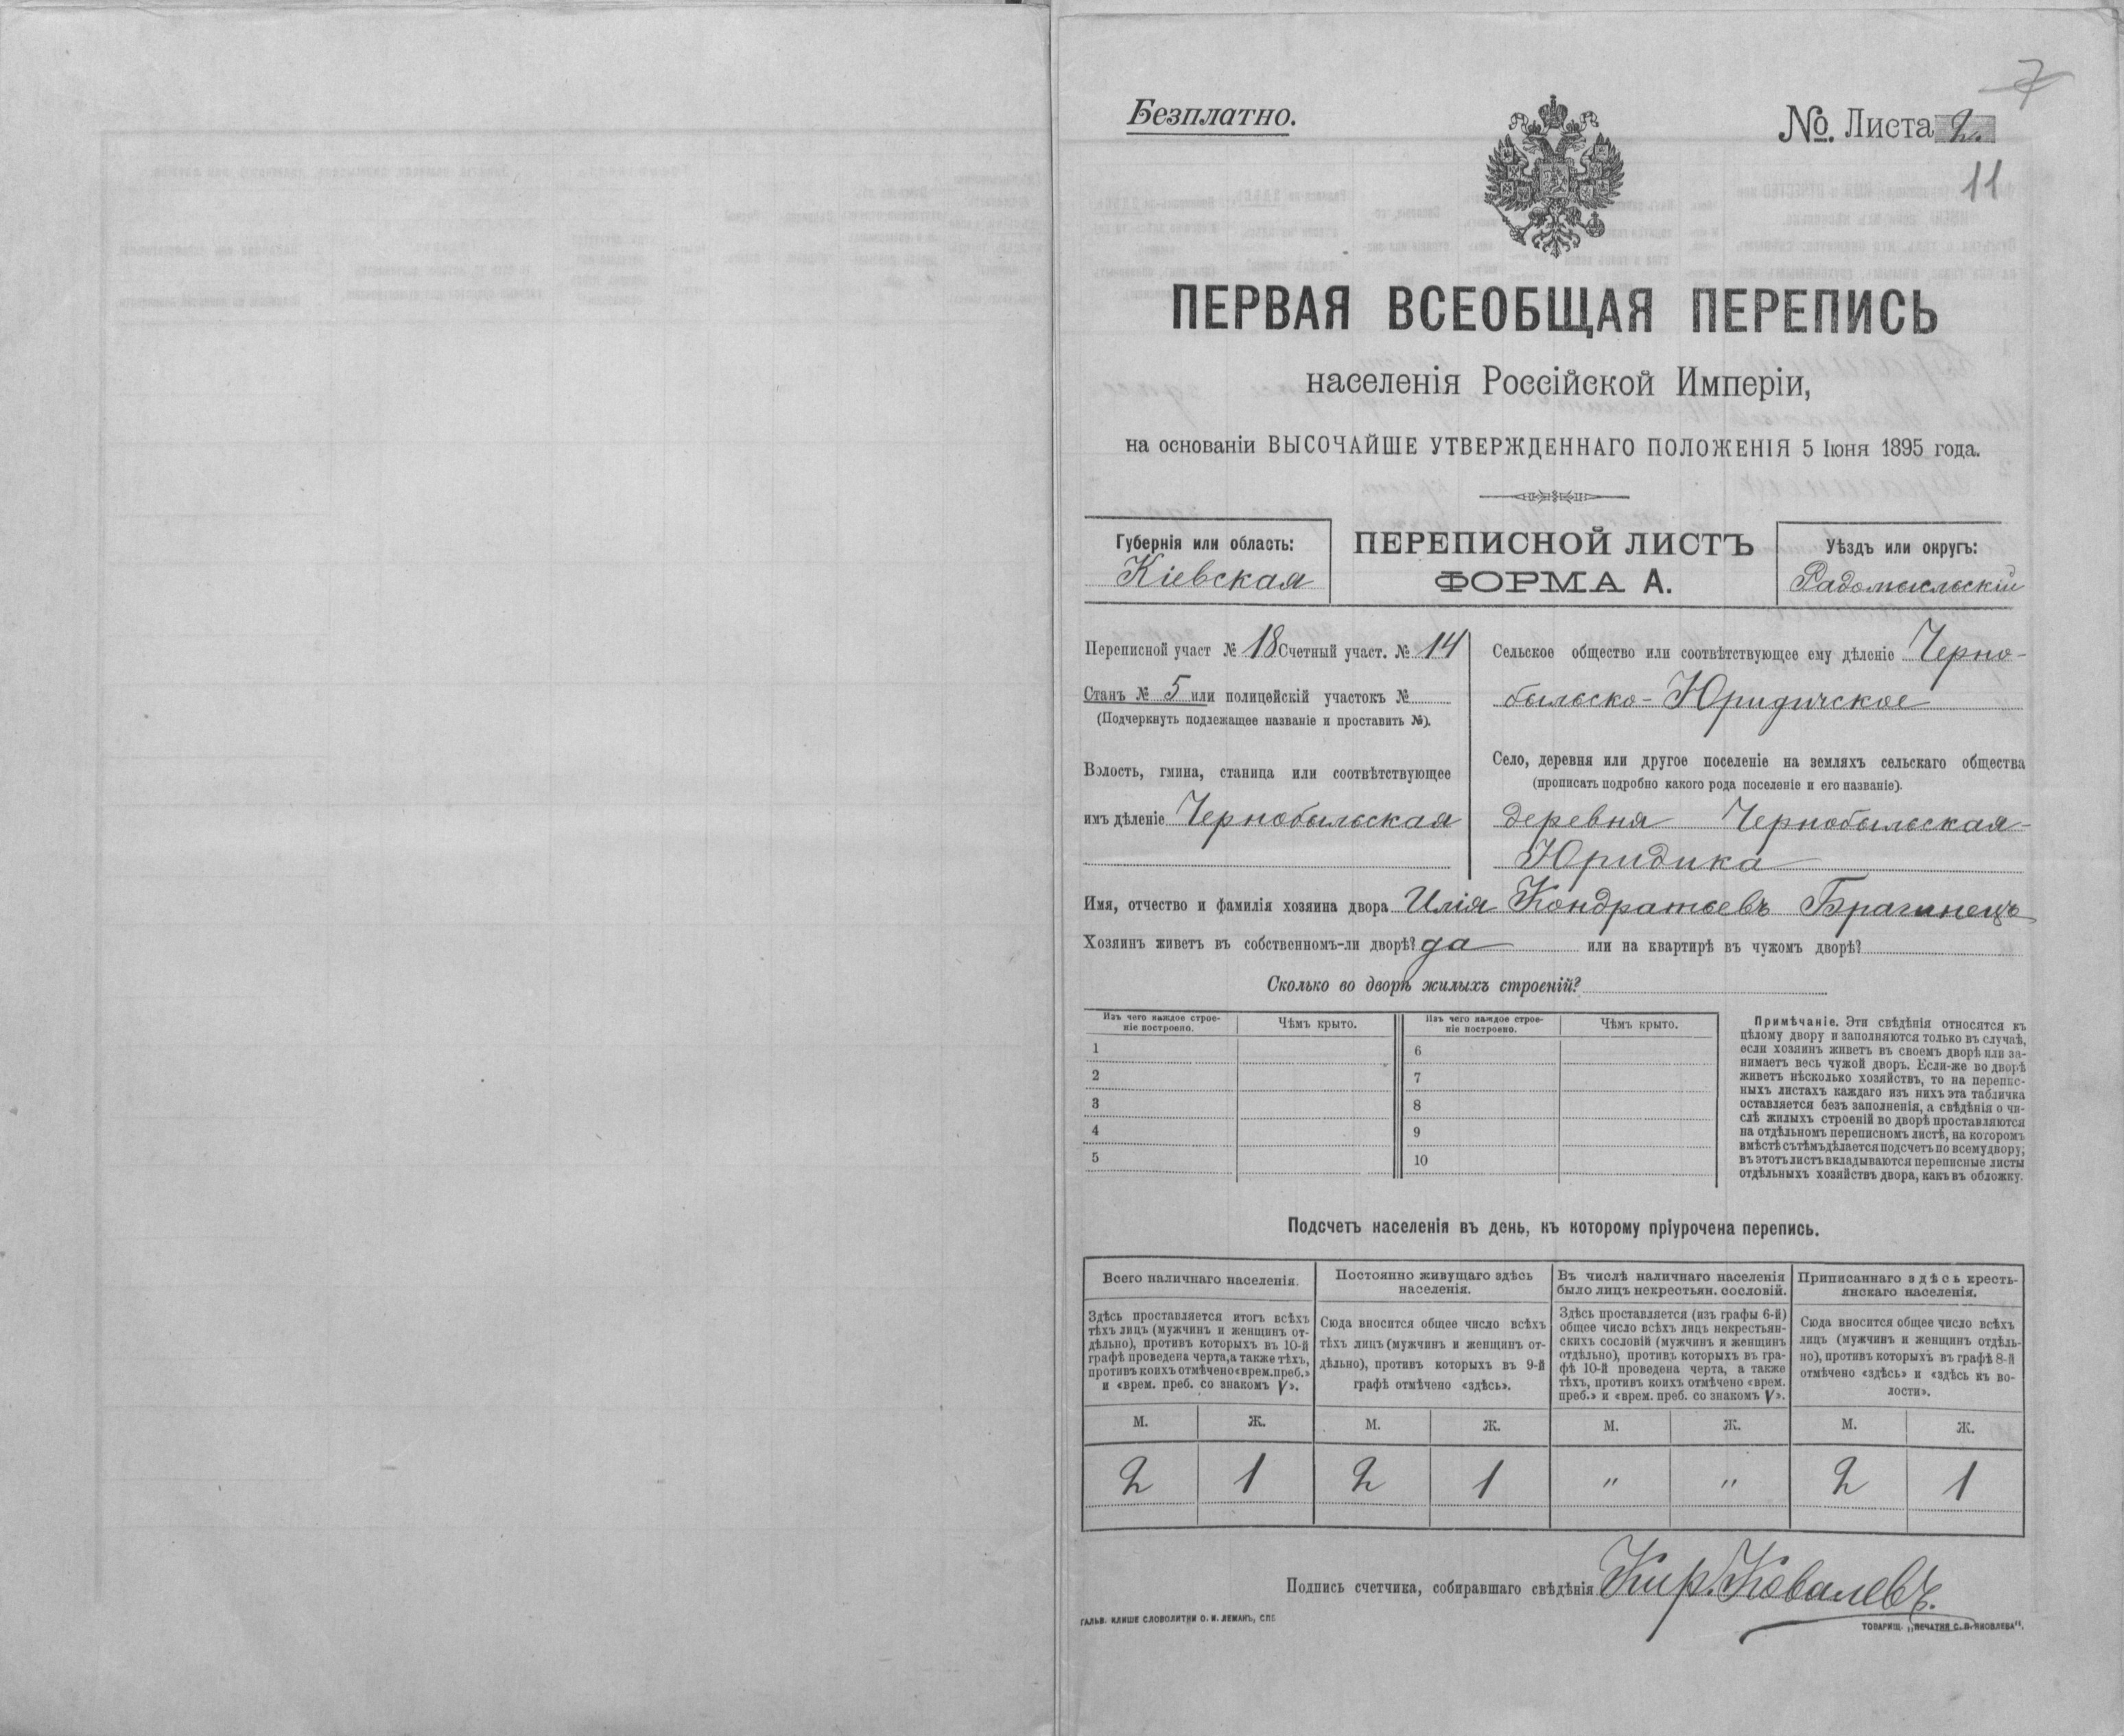 7
Безплатно.
№. Листа 2.
11
ПЕРВАЯ ВСЕОБЩАЯ ПЕРЕПИСЬ
населенія Россійской Имперіи,
на основаніи ВЫСОЧАЙШЕ УТВЕРЖДЕННАГО ПОЛОЖЕНІЯ 5 Іюня 1895 года.
Губернія или область:
Кіевская
ПЕРЕПИСНОЙ ЛИСТЪ
ФОРМА А.
Уѣздъ или округъ:
Радомысльскій
Переписной участ № 18 Счетный участ. № 14
Станъ № 5 или полицейскій участокъ №
(Подчеркнуть подлежащее названіе и проставить №).
Волость, гмина, станица или соотвѣтствующее
имъ дѣленіе Чернобыльская
Сельское общество или соотвѣтствующее ему дѣленіе Черно-
быльско-Юридическое
Село, деревня или другое поселеніе на земляхъ сельскаго общества
(прописать подробно какого рода поселеніе и его названіе).
деревня Чернобыльская-
Юридика
Имя, отчество и фамилія хозяина двора Илія Кондратьевъ Брагинецъ
Хозяинъ живетъ въ собственномъ-ли дворѣ? да или на квартирѣ въ чужомъ дворѣ?
Сколько во дворѣ жилыхъ строеній?
Изъ чего каждое строе-
ніе построено.
Чѣмъ крыто.
Изъ чего каждое строе-
ніе построено.
Чѣмъ крыто.
1 6
2 7
3 8
4 9
5 10
Примѣчаніе. Эти свѣдѣнія относятся къ
цѣлому двору и заполняются только въ случаѣ,
если хозяинъ живетъ въ своемъ дворѣ или за-
нимаетъ весь чужой дворъ. Если-же во дворѣ
живетъ нѣсколько хозяйствъ, то на перепис-
ныхъ листахъ каждаго изъ нихъ эта табличка
оставляется безъ заполненія, а свѣдѣнія о чи-
слѣ жилыхъ строеній во дворѣ проставляются
на отдѣльномъ переписномъ листѣ, на которомъ
вмѣстѣ съ тѣмъ дѣлается подсчетъ по всему двору;
въ этотъ листъ вкладываются переписные листы
отдѣльныхъ хозяйствъ двора, какъ въ обложку.
Подсчетъ населенія въ день, къ которому пріурочена перепись.
Всего наличнаго населенія.
Здѣсь проставляется итогъ всѣхъ
тѣхъ лицъ (мужчинъ и женщинъ от-
дѣльно), противъ которыхъ въ 10-й
графѣ проведена черта, а также тѣхъ,
противъ коихъ отмѣчено «врем. преб.»
и «врем. преб. со знакомъ V».
Постоянно живущаго здѣсь
населенія.
Сюда вносится общее число всѣхъ
тѣхъ лицъ (мужчинъ и женщинъ от-
дѣльно), противъ которыхъ въ 9-й
графѣ отмѣчено «здѣсь».
Въ числѣ наличнаго населенія
было лицъ некрестьян. сословій.
Здѣсь проставляется (изъ графы 6-й)
общее число всѣхъ лицъ некрестьян-
скихъ сословій (мужчинъ и женщинъ
отдѣльно), противъ которыхъ въ гра-
фѣ 10-й проведена черта, а также
тѣхъ, противъ коихъ отмѣчено «врем.
преб.» и «врем. преб. со знакомъ V».
Приписаннаго здѣсь кресть-
янскаго населенія.
Сюда вносится общее число всѣхъ
лицъ (мужчинъ и женщинъ отдѣль-
но), противъ которыхъ въ графѣ 8-й
отмѣчено «здѣсь» и «здѣсь къ во-
лости».
М. Ж. М. Ж. М. Ж. М. Ж.
2 1 2 1 " " 2 1
Подпись счетчика, собиравшаго свѣдѣнія Кир. Ковалевъ.
ГАЛЬВ. КЛИШЕ СЛОВОЛИТНИ О. И. ЛЕМАНЪ, СПБ
ТОВАРИЩ. „ПЕЧАТНЯ С. П. ЯКОВЛЕВА".